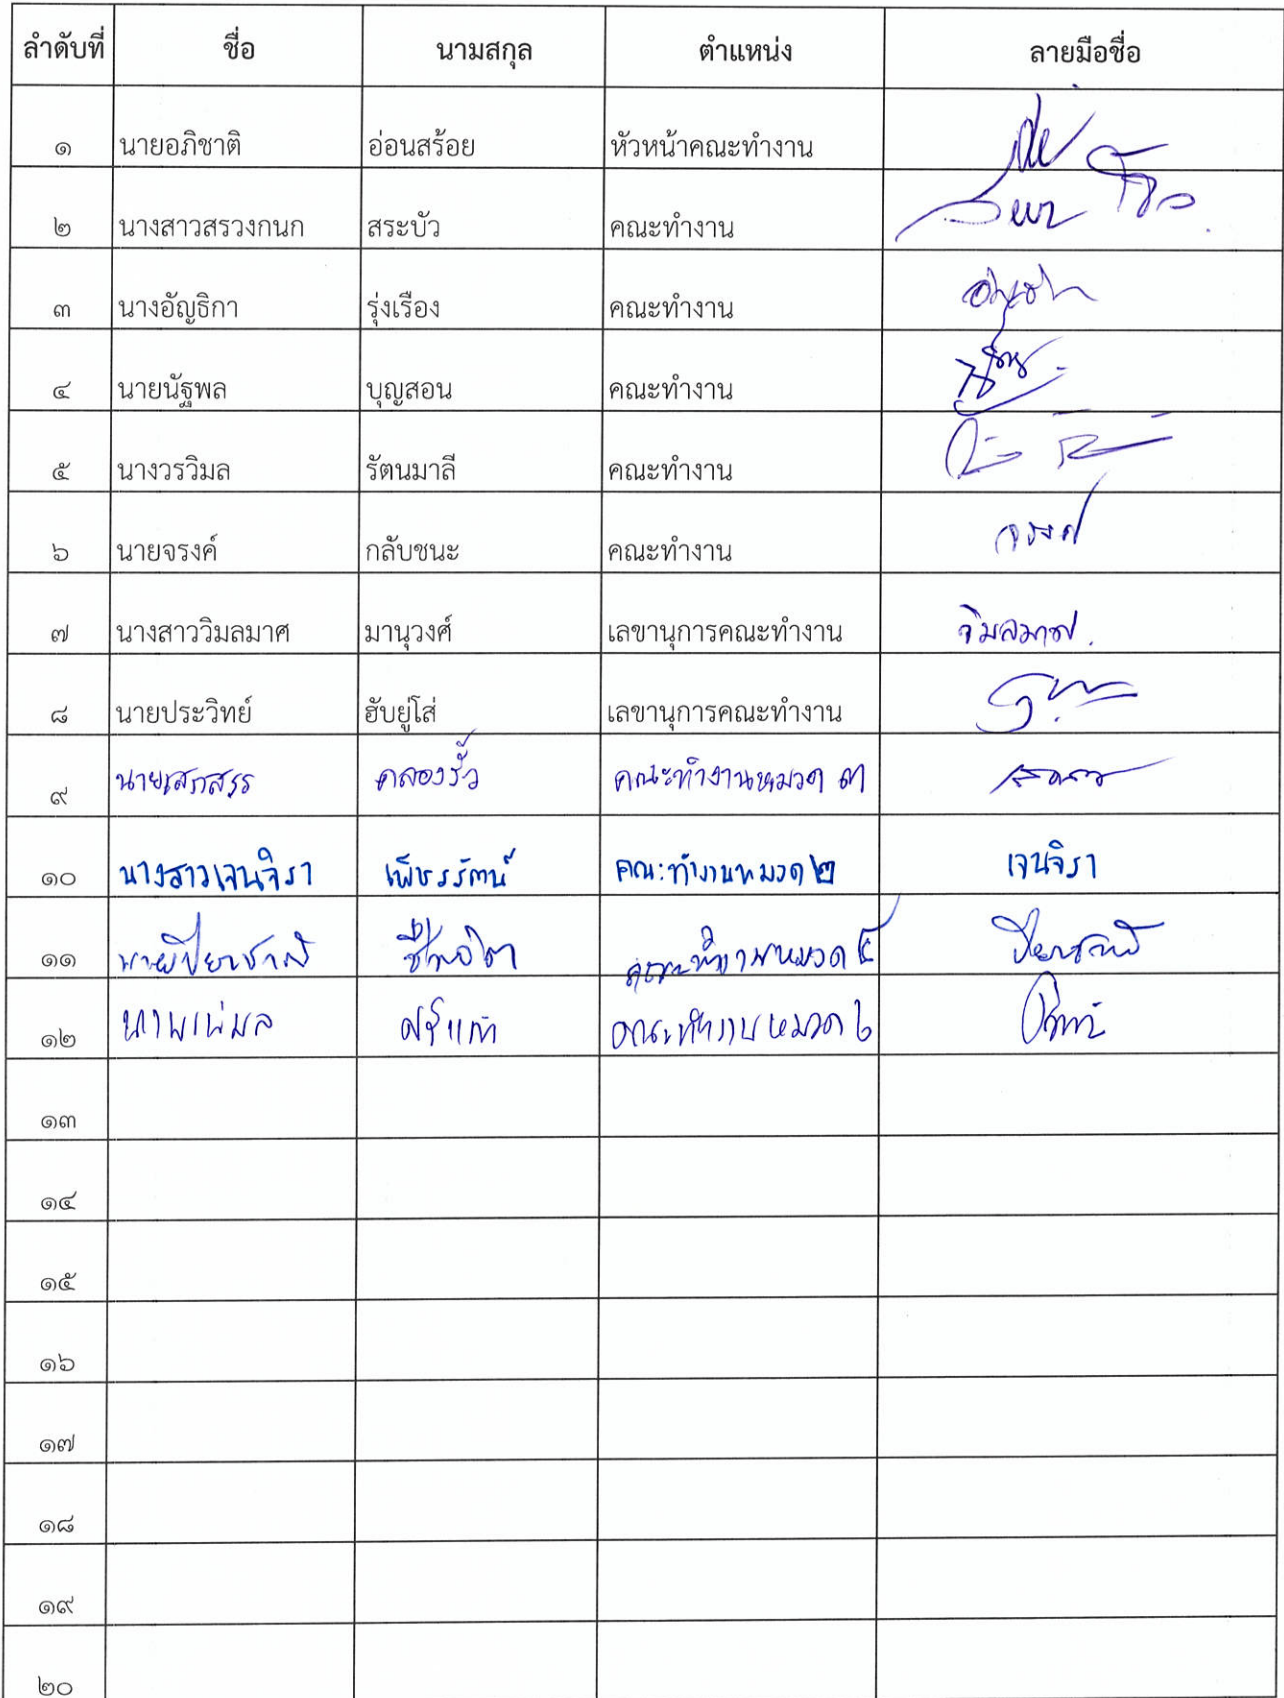 ลำดับที่ ชื่อ นามสกุล ตำแหน่ง ลายมือชื่อ
๑ นายอภิชาติ อ่อนสร้อย หัวหน้าคณะทำงาน
๒ นางสาวสรวงกนก สระบัว คณะทำงาน
๓ นางอัญธิกา รุ่งเรือง คณะทำงาน
๔ นายนัฐพล บุญสอน คณะทำงาน
๕ นางวรวิมล รัตนมาลี คณะทำงาน
๖ นายจรงค์ กลับชนะ คณะทำงาน จรงค์
๗ นางสาววิมลมาศ มานุวงศ์ เลขานุการคณะทำงาน วิมลมาศ.
๘ นายประวิทย์ ฮับยู่โส่ เลขานุการคณะทำงาน
๙ นายเสกสรร คลองรั้ว คณะทำงานหมวด ๓
๑๐ นางสาวเจนจิรา เพ็ชรรัตน์ คณะทำงานหมวด ๒ เจนจิรา
๑๑ คณะทำงานหมวด ๕
๑๒ คณะทำงานหมวด ๖
๑๓
๑๔
๑๕
๑๖
๑๗
๑๘
๑๙
๒๐